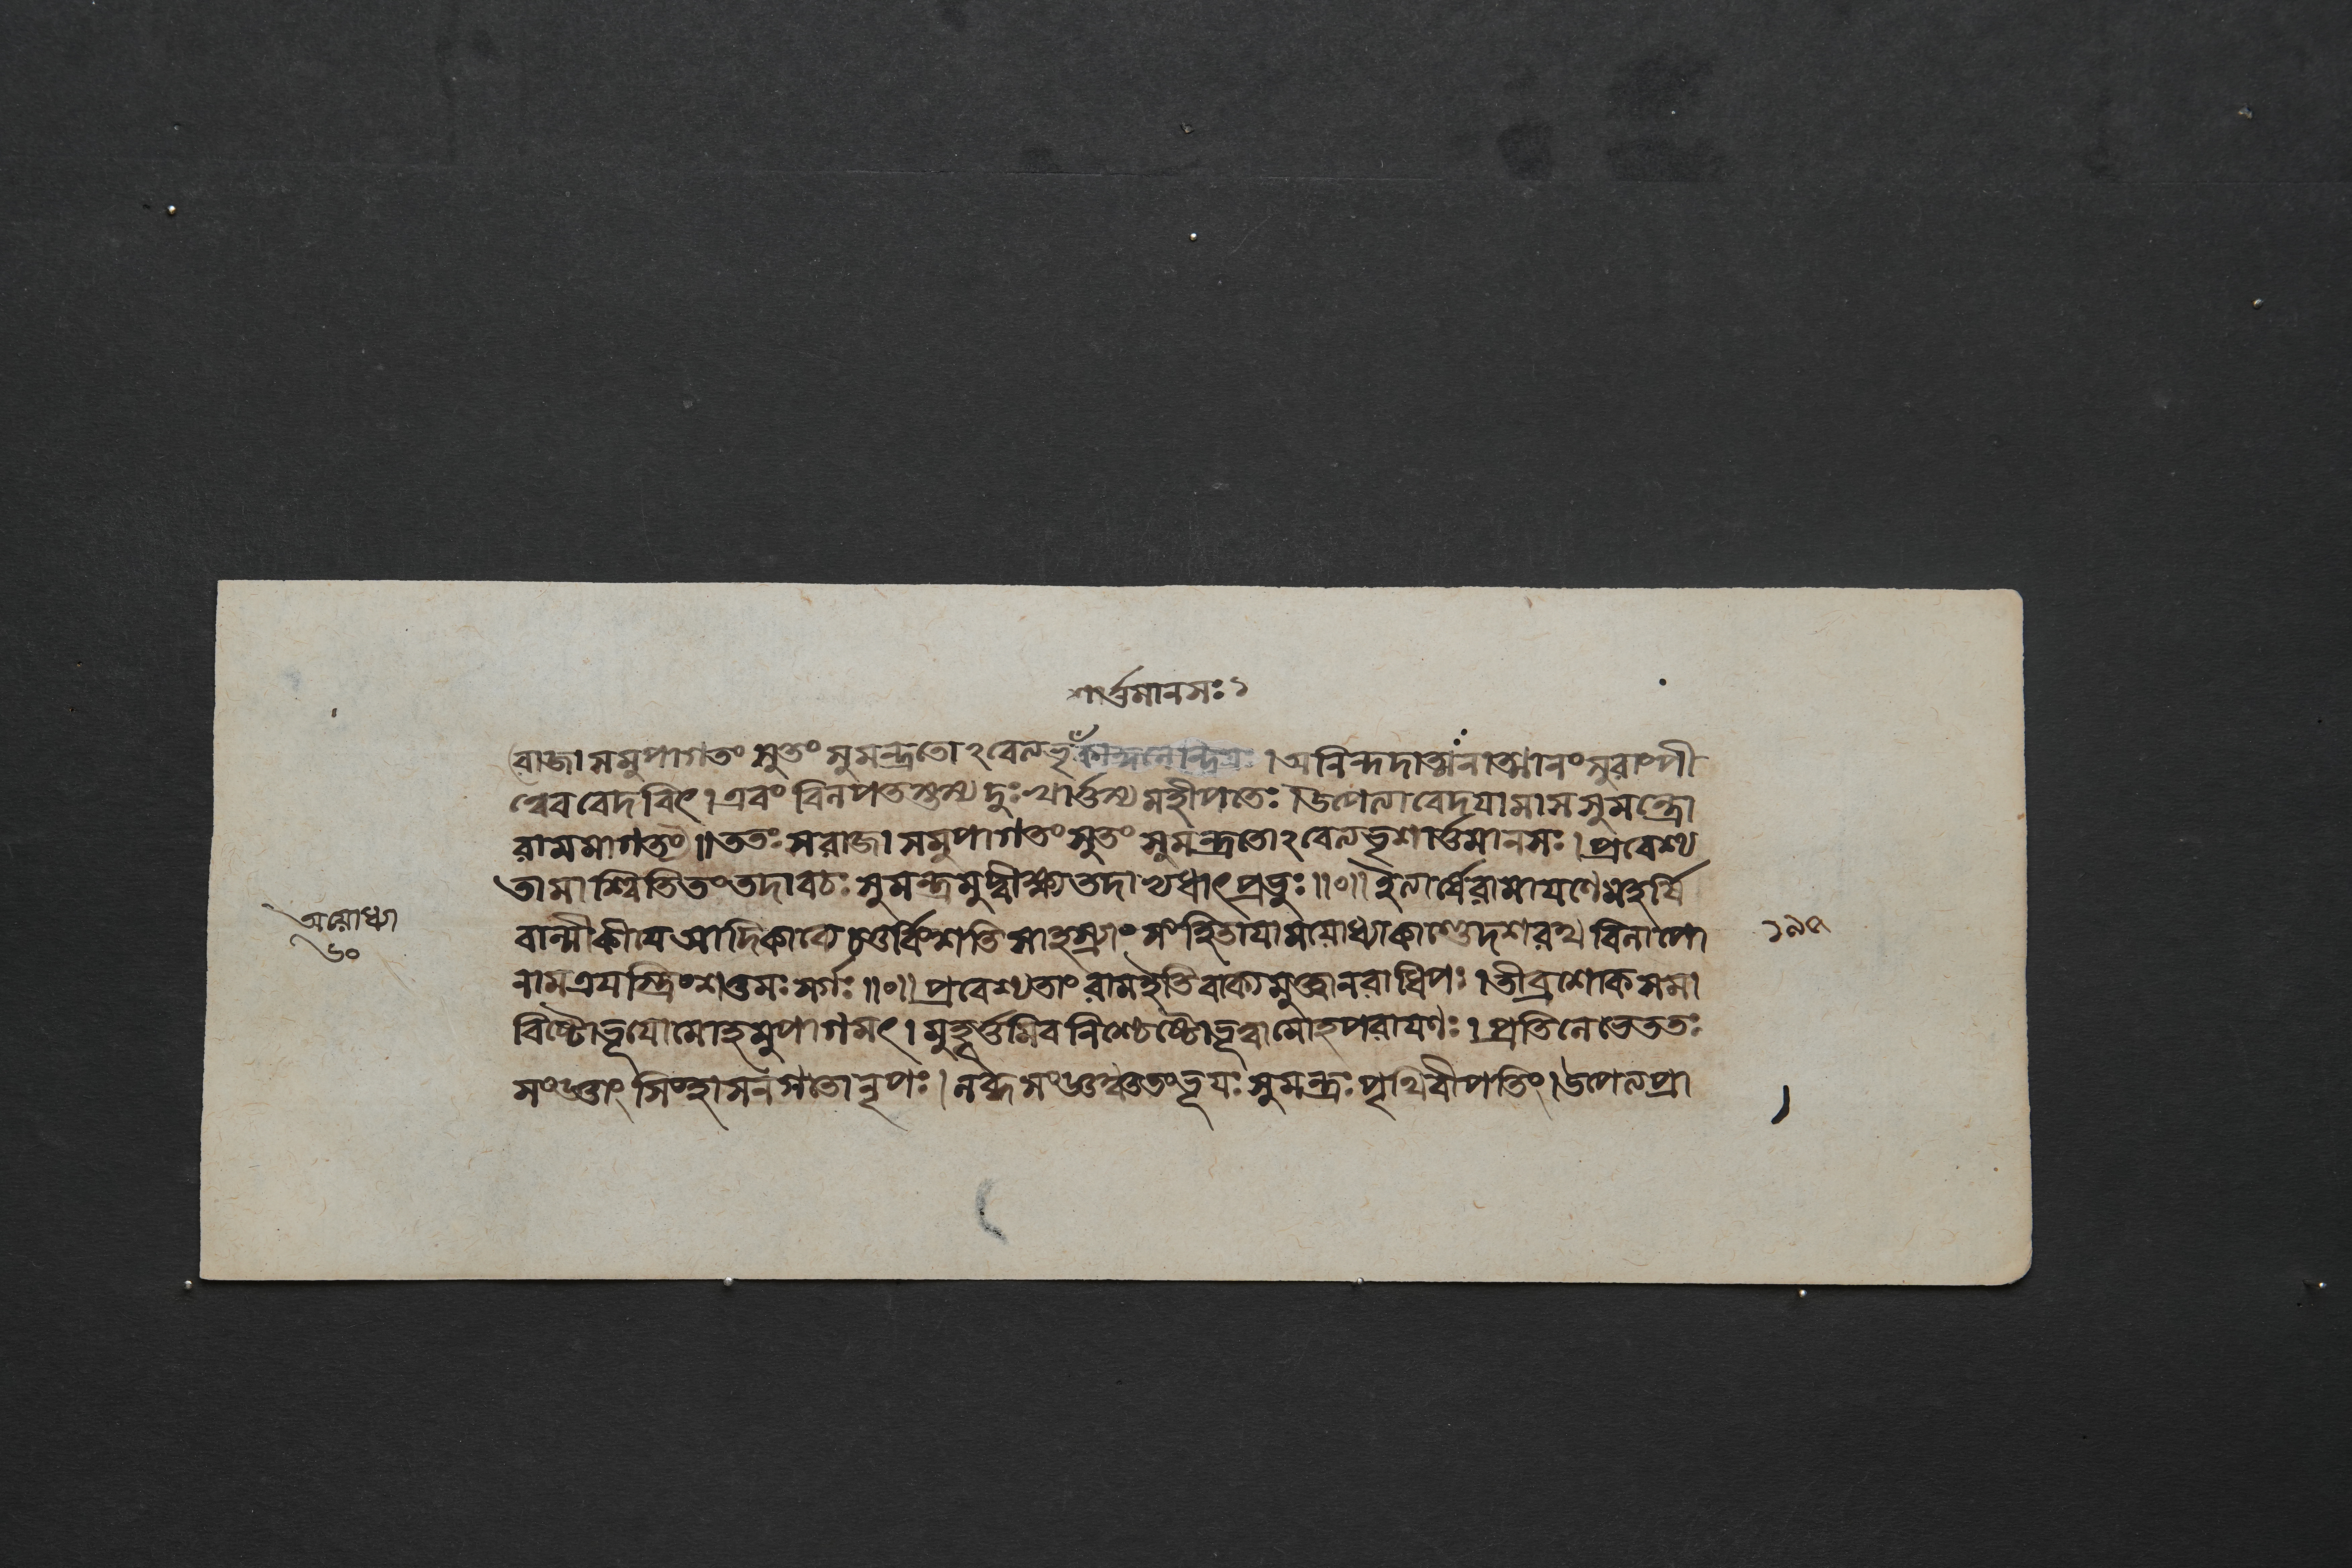 শার্ত্তমানসঃ১
রাজা সমুপাগতং সুতং সুমন্ত্রতোঽবেত্যভৃ । অনিন্দদাত্মানাত্মানং সুরাংপী
ত্বেব বেদবিৎ । এবং বিলপতস্তস্য দুঃখার্ত্তস্য মহীপতেঃ । উপেত্যাবেদযামাস সুমন্ত্রো
রামমাগতং ॥ ততঃ স রাজা সমুপাগতং সুতং সুমন্ত্রতোঽবেত্যভৃশার্ত্তমানসঃ । প্রবেশ্য
তামাশ্বিতি তং তদা বচঃ সুমন্ত্রমুদ্বীক্ষ্য তদাভ্যধাৎ প্রভুঃ ॥০॥ ইত্যার্ষে রামাযণে মহর্ষি
বাল্মীকীযে আদিকাব্যে চতুর্ব্বিংশতি সাহস্র্যাং সংহিতাযামযোধ্যাকাণ্ডে দশরথবিলাপো
নাম ত্রযস্ত্রিংশত্তমঃ সর্গঃ ॥০॥ প্রবেশ্যতাং রাম ইতি বাক্যমুক্ত্বা নরাধিপঃ । তীব্রশোকসমা
বিষ্টো ভূযো মোহমুপাগমৎ । মুহূর্ত্তমিব নিশ্চেষ্টো ভূত্বা মোহপরাযণঃ । প্রতিলেভে ততঃ
সংজ্ঞাং সিংহাসনগতো নৃপঃ । লব্ধসংজ্ঞন্তু তং ভূযঃ সুমন্ত্রঃ পৃথিবীপতিং । উপেত্য প্রা
অযোধ্যা
৬০
১৯৫